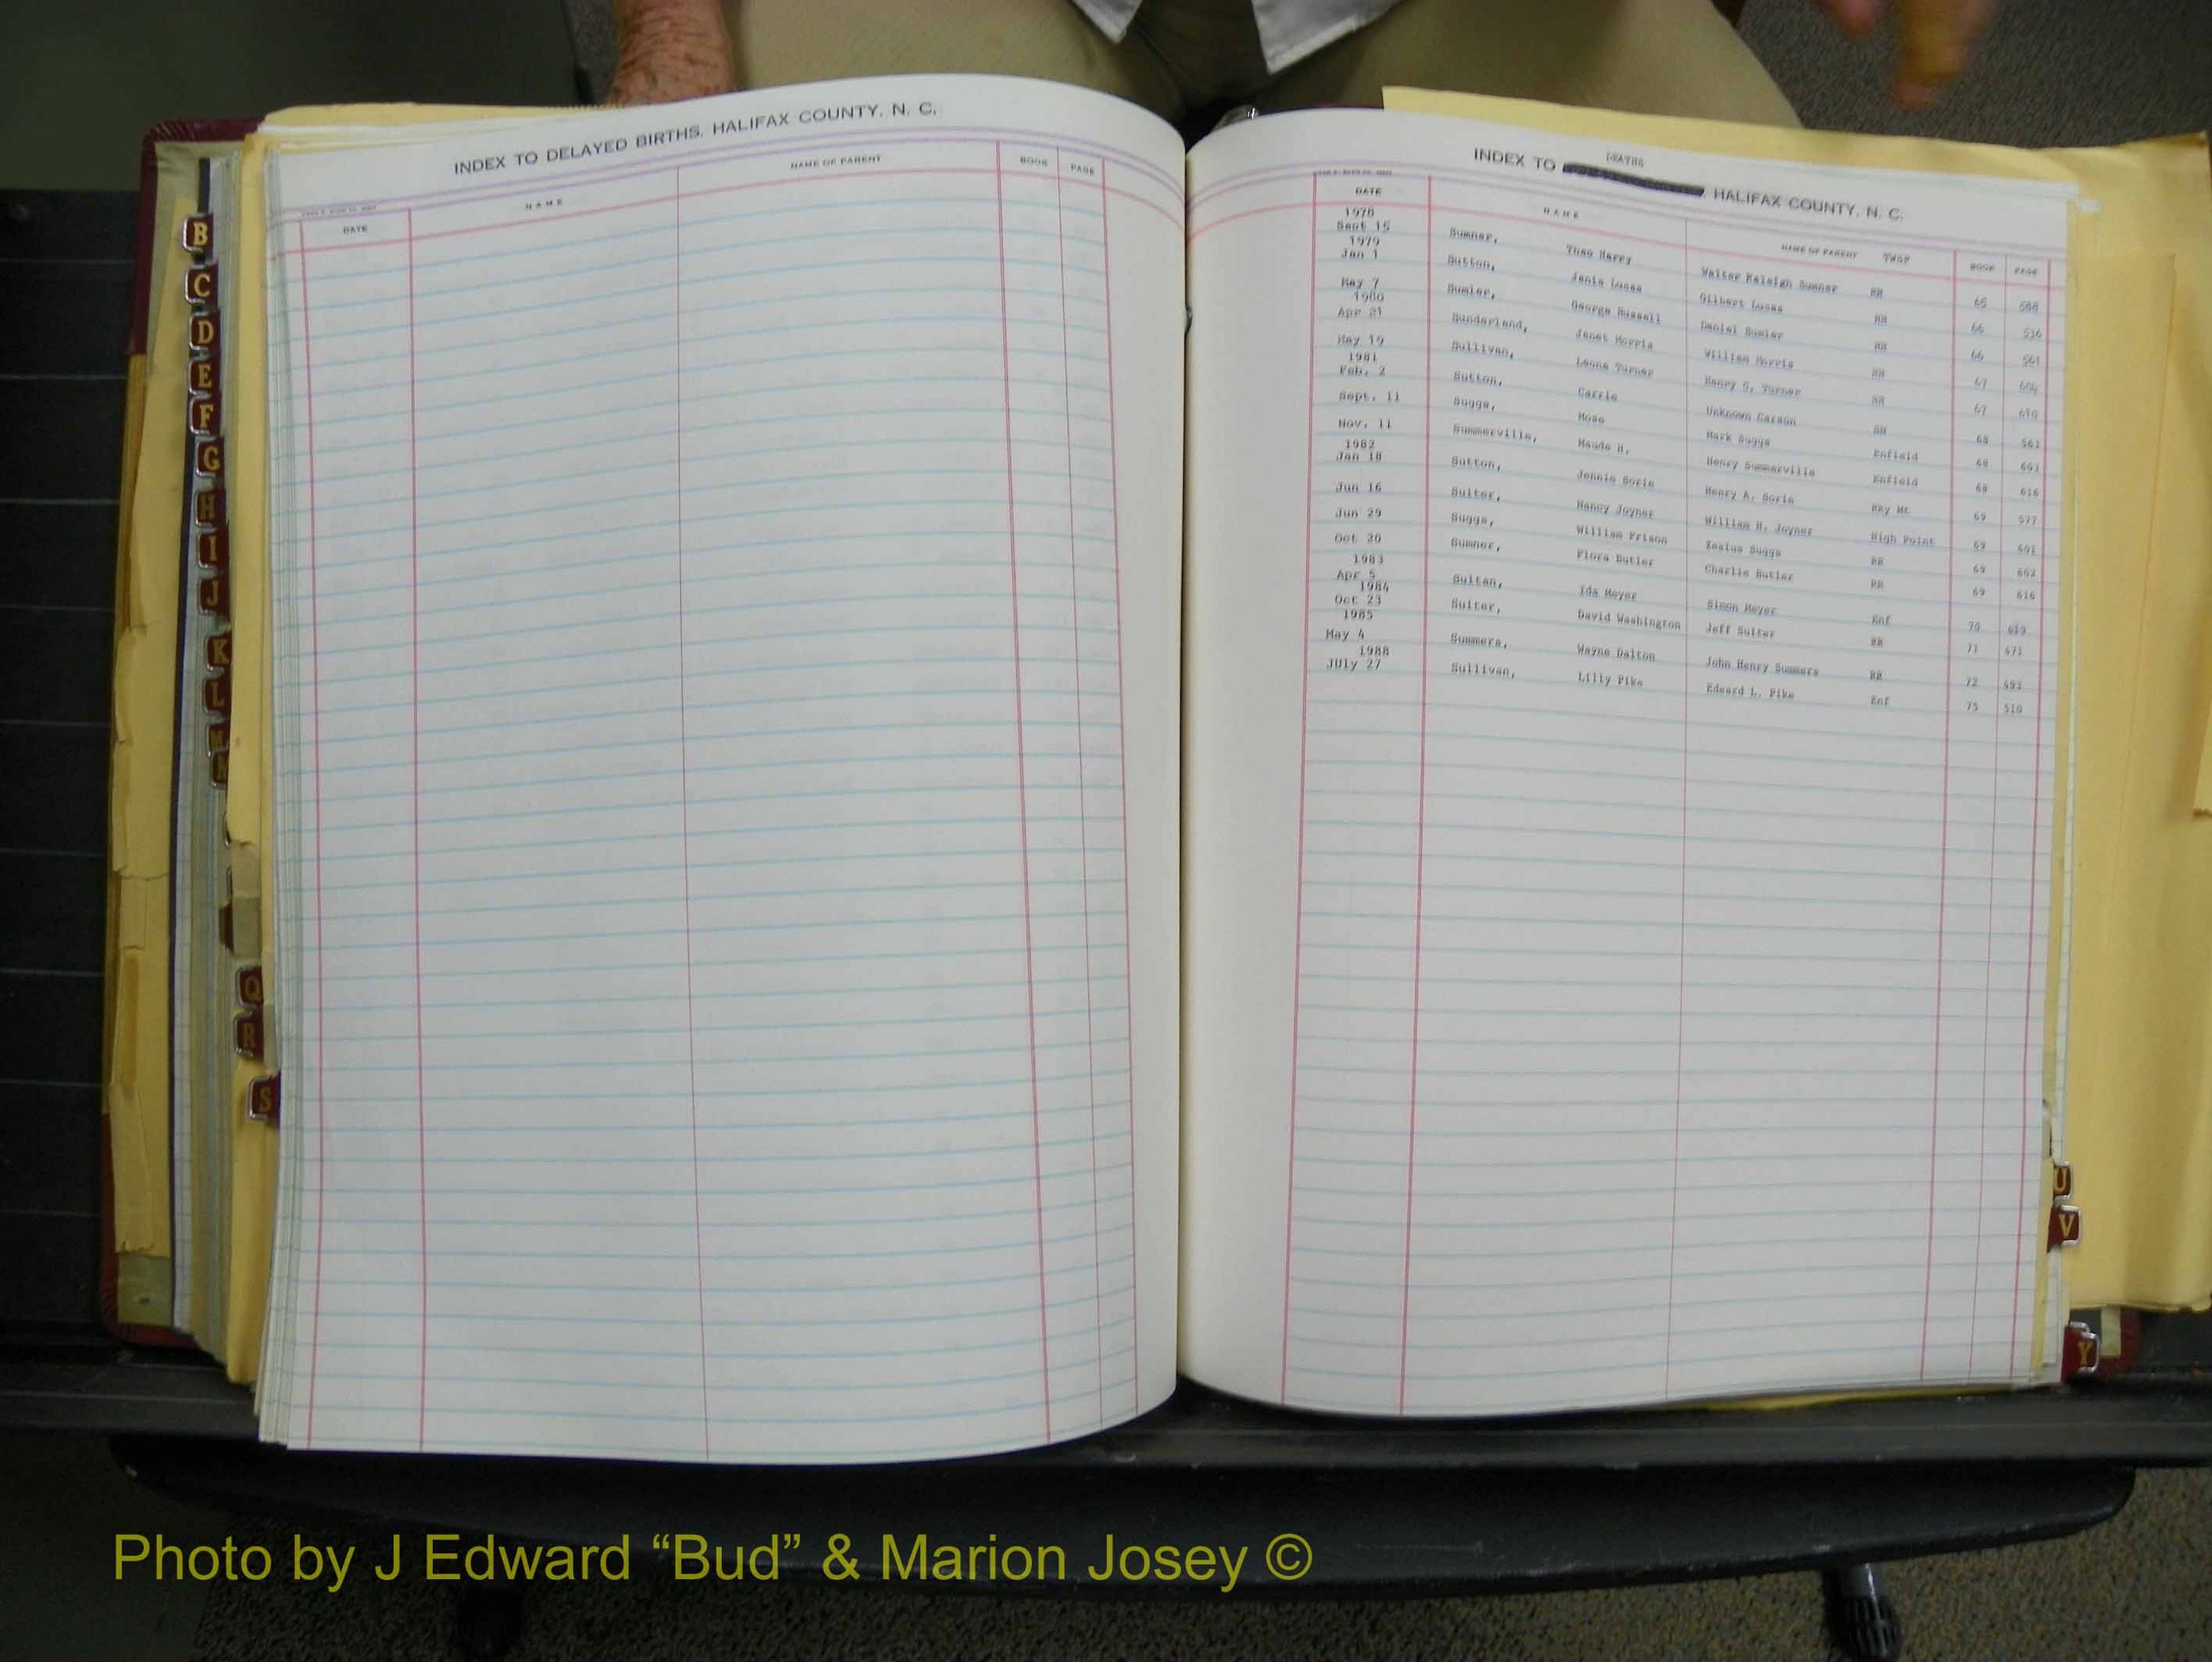 INDEX TO DELAYED BIRTHS, HALIFAX COUNTY, N. C.
DATE NAME NAME OF PARENT BOOK PAGE
B
C
D
E
F
G
H
I
J
K
L
M
Q
R
S
DEATHS
INDEX TO HALIFAX COUNTY, N. C.
DATE NAME NAME OF PARENT TWSP BOOK PAGE
1978
Sept 15 Sumner, Theo Harry Walter Raleigh Sumner RR 65 588
1979
Jan 1 Sutton, Janie Lucas Gilbert Lucas RR 66 536
May 7 Sumler, George Russell Daniel Sumler RR 66 561
1980
Apr 21 Sunderland, Janet Morris William Morris RR 67 604
May 19 Sullivan, Leona Turner Henry G. Turner RR 67 610
1981
Feb. 2 Sutton, Carrie Unknown Carson 68 563
Sept. 11 Suggs, Mose Mark Suggs Enfield 68 603
Nov. 11 Summerville, Maude H. Henry Summerville Enfield 68 616
1982
Jan 18 Sutton, Jennie Sorie Henry A. Sorie Rky Mt 69 577
Jun 16 Suiter, Nancy Joyner William H. Joyner High Point 69 601
Jun 29 Suggs, William Prison Suggs RR 69 602
Oct 20 Sumner, Flora Butler Charlie Butler RR 69 616
1983
Apr 5 Ida Meyer Simon Meyer Enf 70
1984
Oct 23 Suiter, David Washington Jeff Suiter RR 71 671
1985
May 4 Summers, Wayne Dalton John Henry Summers RR 72 493
1988
JUly 27 Sullivan, Lilly Pike Edward L. Pike Enf 75 510
U
V
Y
Photo by J Edward “Bud” & Marion Josey ©